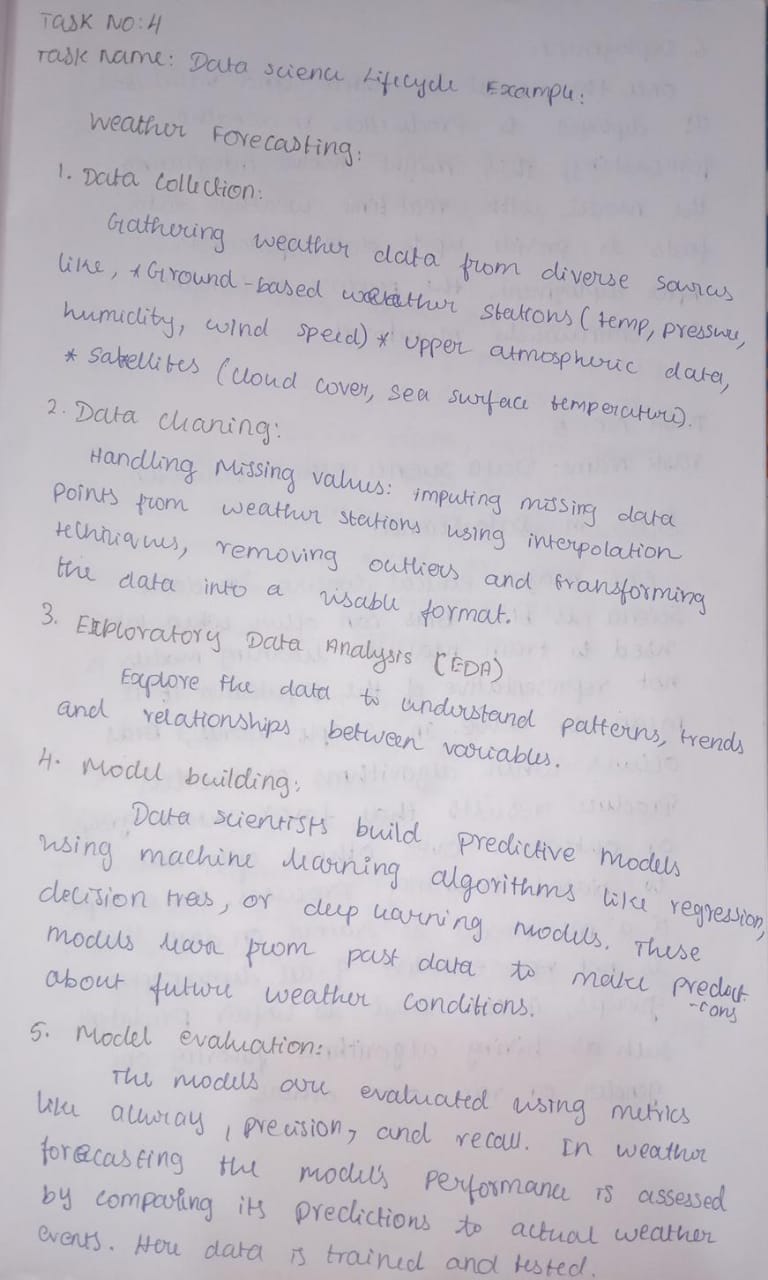 TASK NO: 4
Task name: Data science Lifecycle Example:
Weather Forecasting:
1. Data Collection:
Gathering weather data from diverse sources
like, * Ground-based weather stations (temp, pressure,
humidity, wind speed) * upper atmospheric data,
* Satellites (cloud cover, sea surface temperature).
2. Data cleaning:
Handling Missing values: imputing missing data
points from weather stations using interpolation
techniques, removing outliers and transforming
the data into a usable format.
3. Exploratory Data Analysis (EDA)
Explore the data to understand patterns, trends
and relationships between variables.
4. Model building:
Data scientists build predictive models
using machine learning algorithms like regression,
decision trees, or deep learning models. These
models learn from past data to make predict
-ions
about future weather conditions.
5. Model evaluation:
The models are evaluated using metrics
like accuracy, precision, and recall. In weather
forecasting the model's performance is assessed
by comparing its predictions to actual weather
events. Here data is trained and tested.